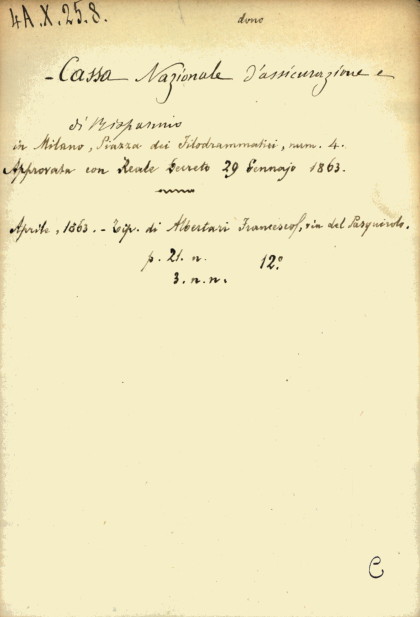 4A.X.25.8.
dono
- Cassa Nazionale d'assicurazione e
di Risparmio
in Milano, Piazza dei Filodrammatici, num. 4.
Approvata con Reale Decreto 29 Gennajo 1863.
Aprile, 1863. - Tip. di Albertari Francesco, via del Pasquirolo.
p. 21. n. 12.º
3. n. n.
C